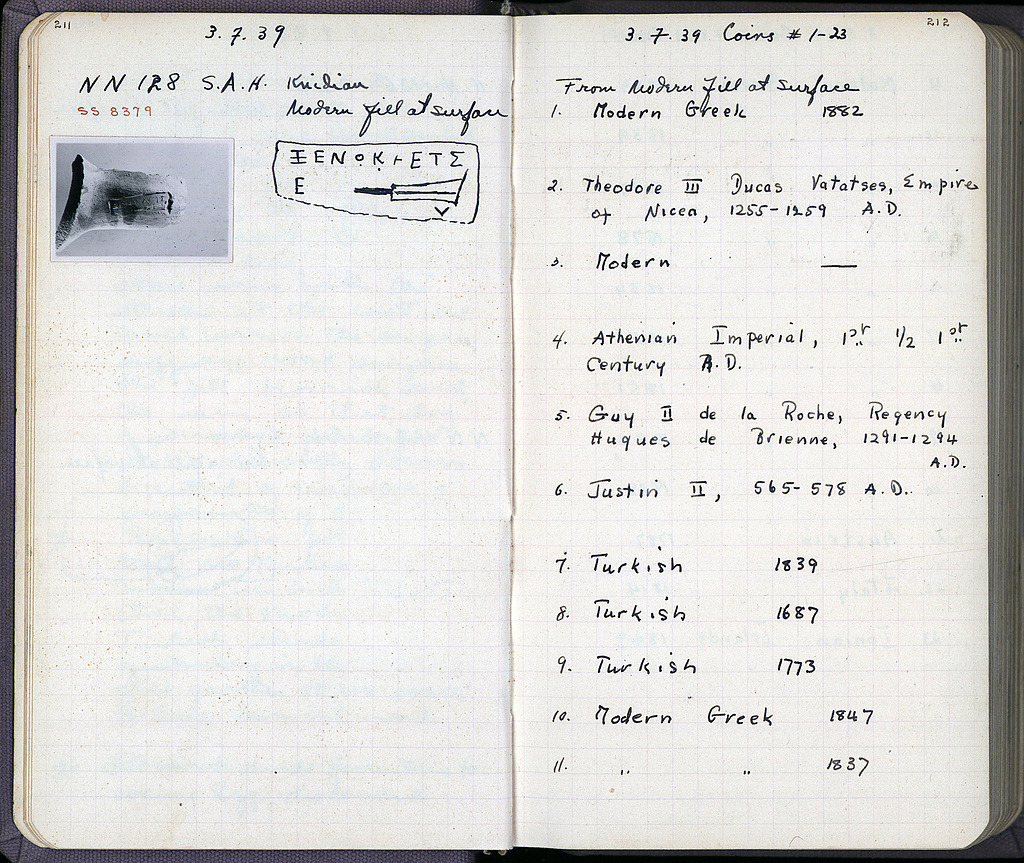 211
3.7.39
NN 128 S.A.H. Knidian
SS 8379 Modern fill at surface
ΞΕΝΟΚ⊢ΕΤΣ
Ε
212
3.7.39 Coins #1-23
From Modern fill at surface
1. Modern Greek 1882
2. Theodore III Ducas Vatatses, Empire
of Nicea, 1255-1259 A.D.
3. Modern —
4. Athenian Imperial, 1st 1/2 1st
Century A.D.
5. Guy II de la Roche, Regency
Hugues de Brienne, 1291-1294
A.D.
6. Justin II, 565-578 A.D.
7. Turkish 1839
8. Turkish 1687
9. Turkish 1773
10. Modern Greek 1847
11. " " 1837